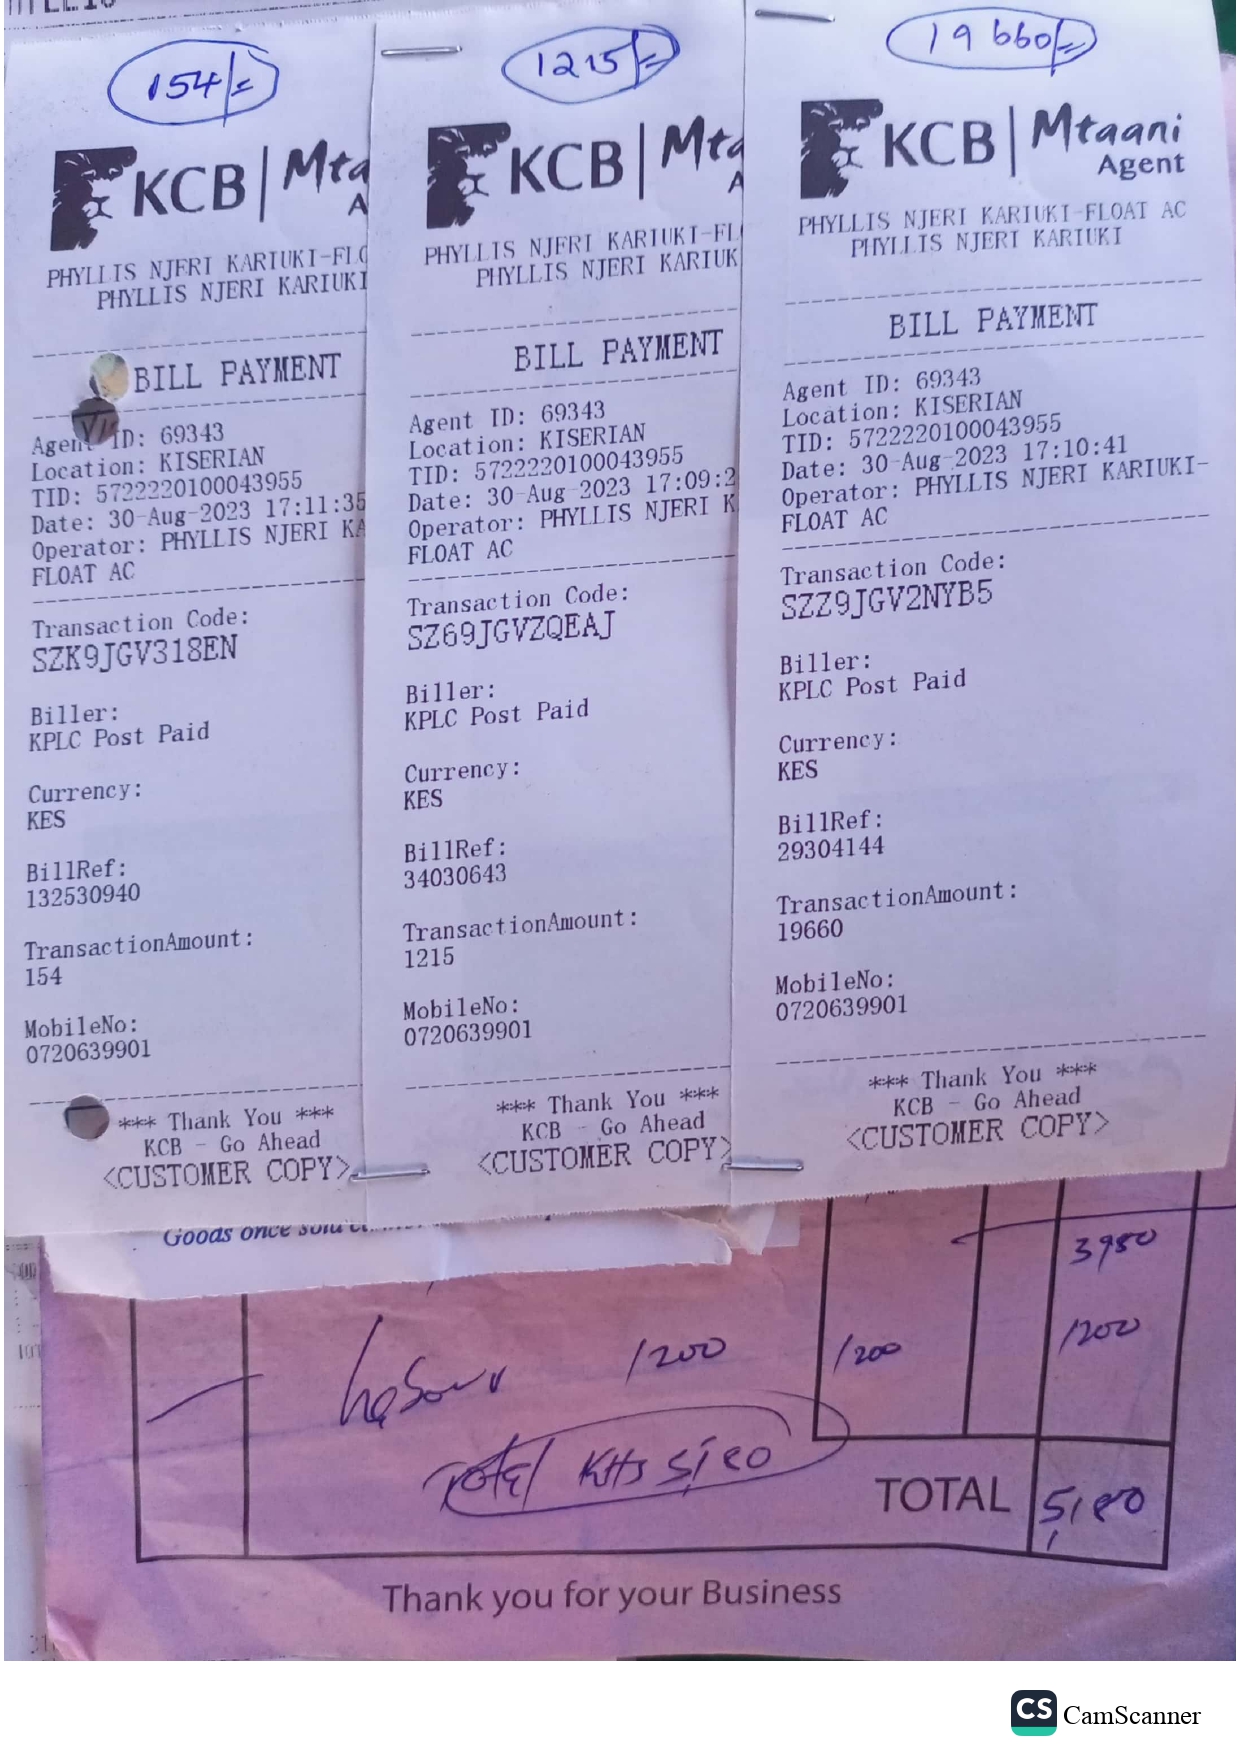 154/=
KCB | Mta
A
PHYLLIS NJERI KARIUKI-FLO
PHYLLIS NJERI KARIUKI
BILL PAYMENT
Agent ID: 69343
Location: KISERIAN
TID: 5722220100043955
Date: 30-Aug-2023 17:11:35
Operator: PHYLLIS NJERI KA
FLOAT AC
Transaction Code:
SZK9JGV318EN
Biller:
KPLC Post Paid
Currency:
KES
BillRef:
132530940
TransactionAmount:
154
MobileNo:
0720639901
*** Thank You ***
KCB - Go Ahead
<CUSTOMER COPY>
1215/=
KCB | Mta
A
PHYLLIS NJERI KARIUKI-FL
PHYLLIS NJERI KARIUK
BILL PAYMENT
Agent ID: 69343
Location: KISERIAN
TID: 5722220100043955
Date: 30-Aug-2023 17:09:2
Operator: PHYLLIS NJERI K
FLOAT AC
Transaction Code:
SZ69JGVZQEAJ
Biller:
KPLC Post Paid
Currency:
KES
BillRef:
34030643
TransactionAmount:
1215
MobileNo:
0720639901
*** Thank You ***
KCB - Go Ahead
<CUSTOMER COPY>
19660/=
KCB | Mtaani
Agent
PHYLLIS NJERI KARIUKI-FLOAT AC
PHYLLIS NJERI KARIUKI
BILL PAYMENT
Agent ID: 69343
Location: KISERIAN
TID: 5722220100043955
Date: 30-Aug-2023 17:10:41
Operator: PHYLLIS NJERI KARIUKI-
FLOAT AC
Transaction Code:
SZZ9JGV2NYB5
Biller:
KPLC Post Paid
Currency:
KES
BillRef:
29304144
TransactionAmount:
19660
MobileNo:
0720639901
*** Thank You ***
KCB - Go Ahead
<CUSTOMER COPY>
Goods once sold
1200 1200 1200
Total
TOTAL
Thank you for your Business
CS CamScanner